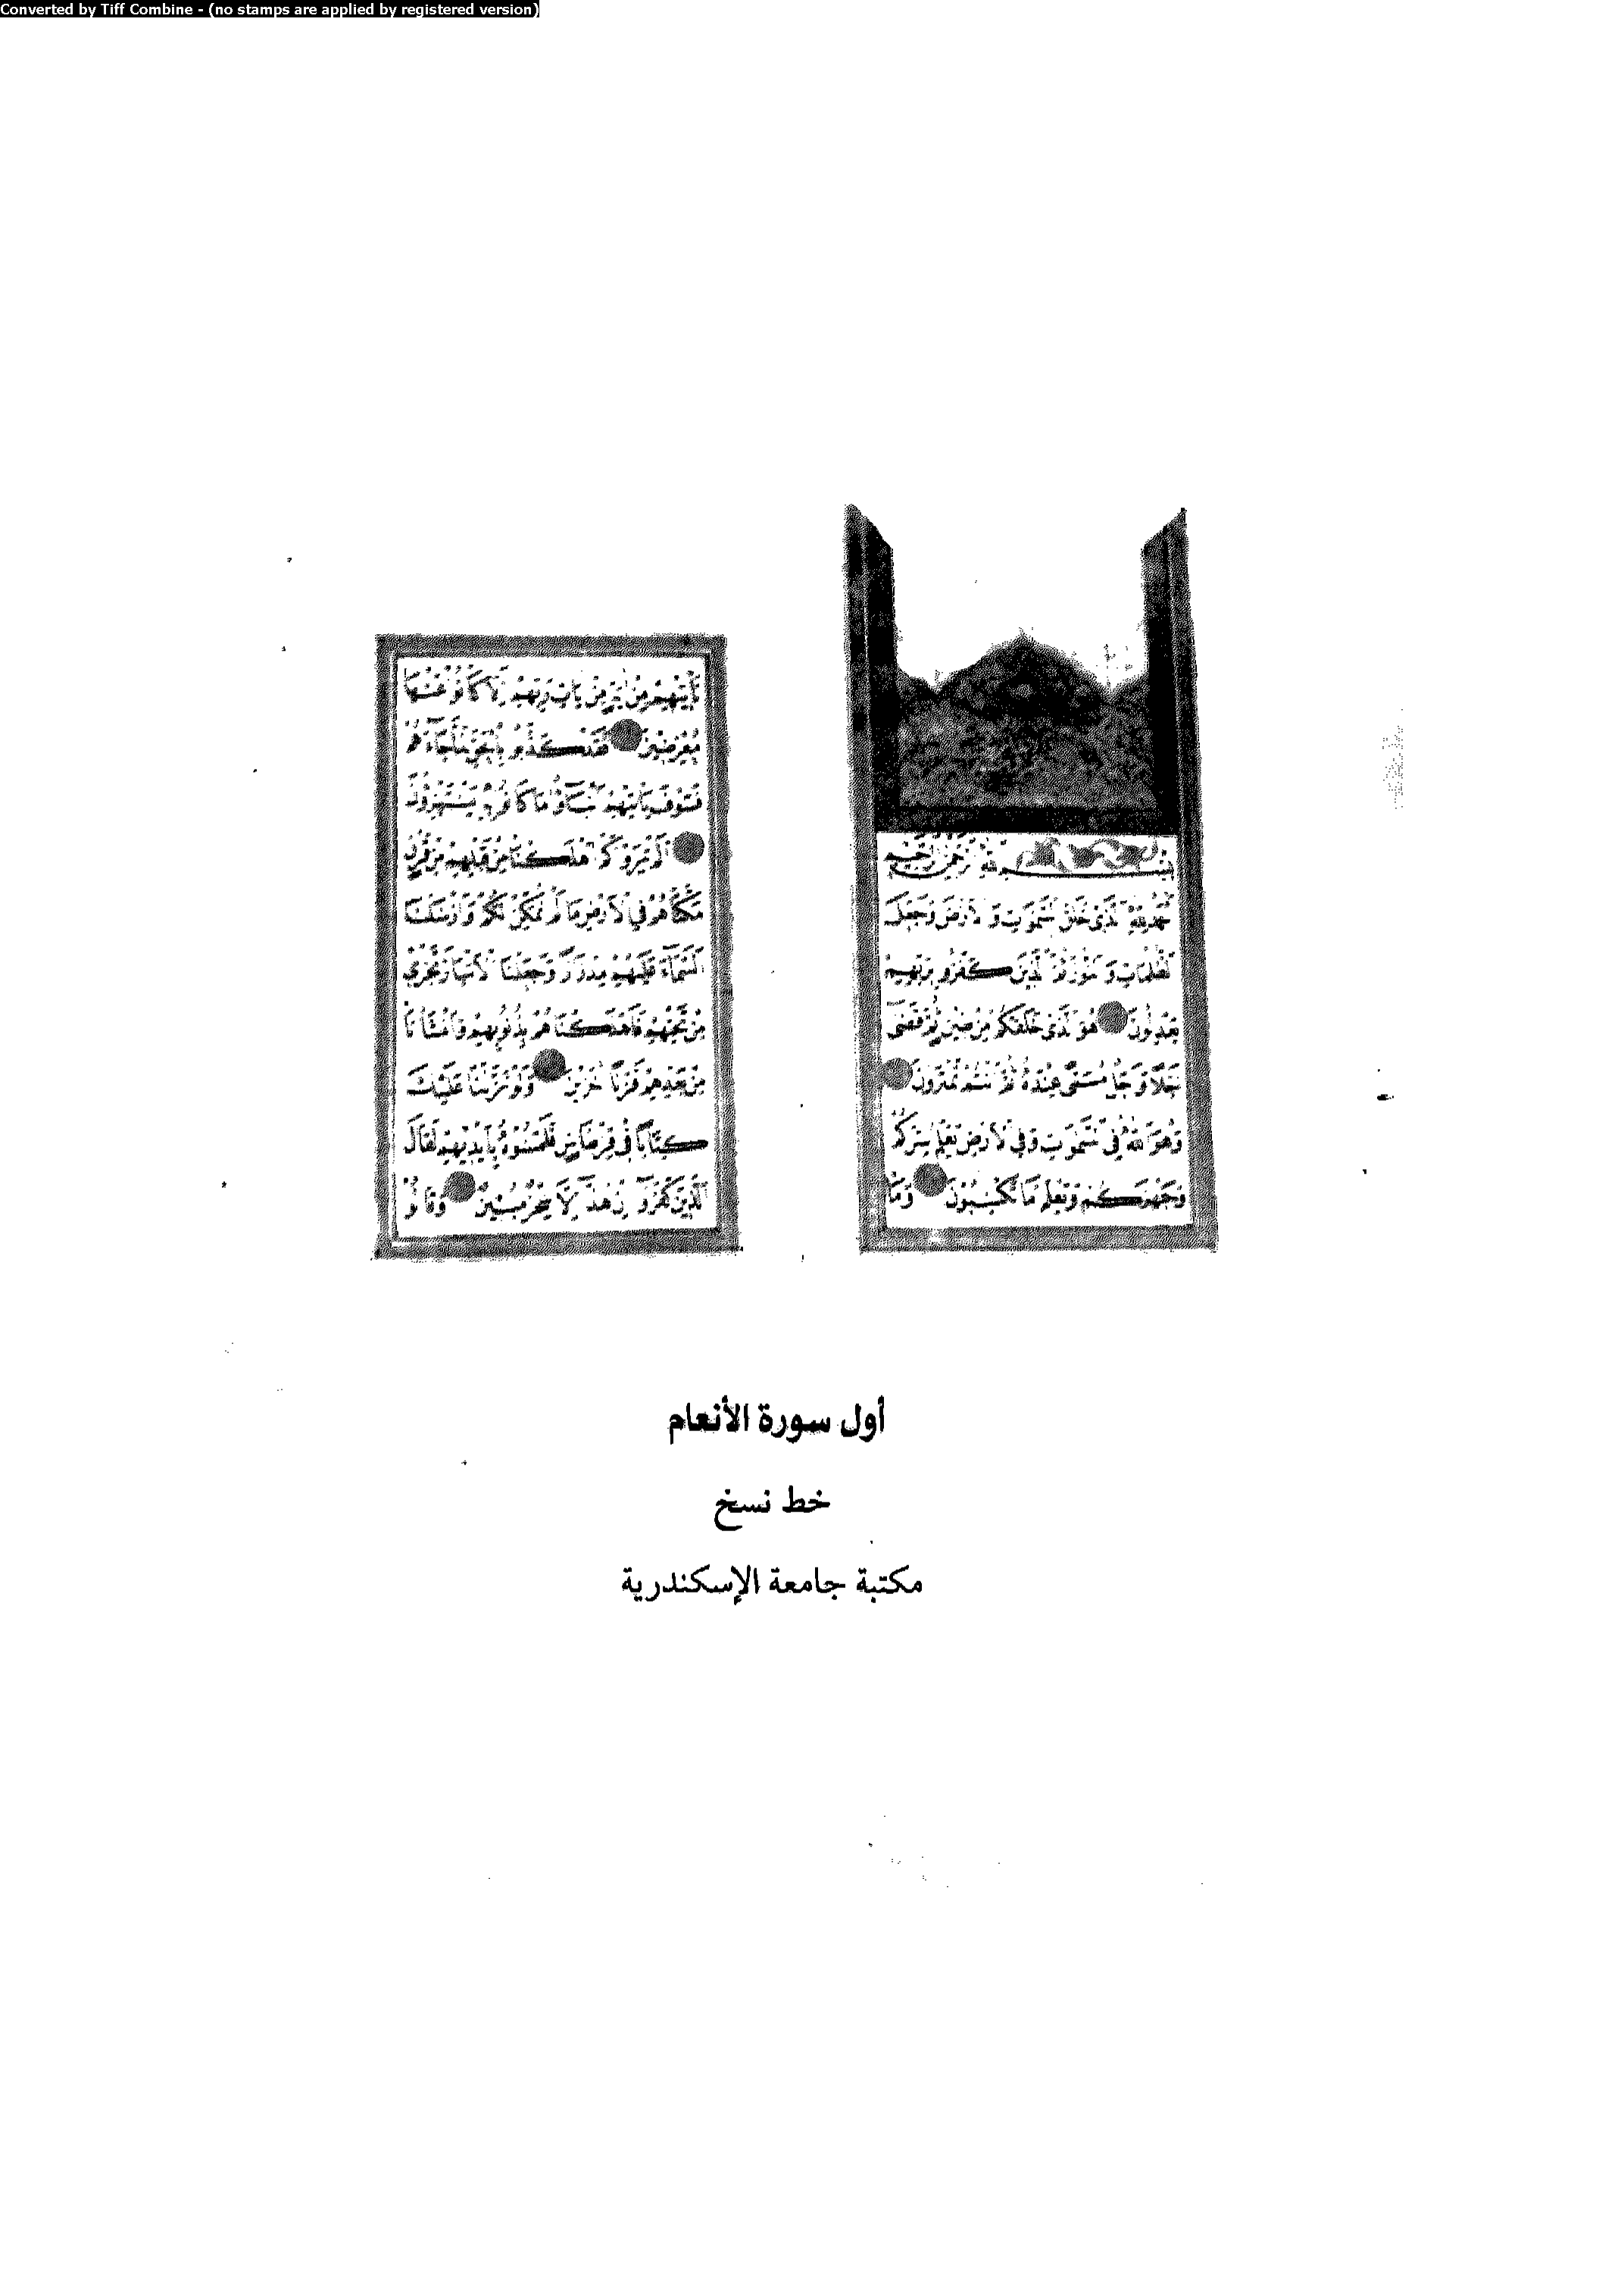 Converted by Tiff Combine - (no stamps are applied by registered version)
بسم الله الرحمن الرحيم
الحمد لله الذى خلق السموات والارض وجعل
الظلمات والنور ثم الذين كفروا بربهم
يعدلون هو الذى خلقكم من طين ثم قضى
اجلا واجل مسمى عنده ثم انتم تمترون
وهو الله فى السموات وفى الارض يعلم سركم
وجهركم ويعلم ما تكسبون وما
تأتيهم من اية من ايات ربهم الا كانوا عنها
معرضين فقد كذبوا بالحق لما جاءهم
فسوف يأتيهم انبؤا ما كانوا به يستهزؤن
الم يروا كم اهلكنا من قبلهم من قرن
مكناهم في الارض ما لم نمكن لكم وارسلنا
السماء عليهم مدرارا وجعلنا الانهار تجري
من تحتهم فاهلكناهم بذنوبهم وانشأنا
من بعدهم قرنا اخرين ولو نزلنا عليك
كتابا في قرطاس فلمسوه بأيديهم لقال
الذين كفروا ان هذا الا سحر مبين وقالوا
أول سورة الأنعام
خط نسخ
مكتبة جامعة الإسكندرية